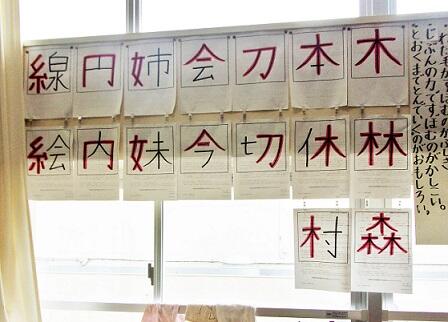 木 本 刀 会 姉 円 線
林 休 切 今 妹 内 絵
森 村
じぶんの力ですぼむのがかしこい。
とおくまでとんでいくのがおもしろい。